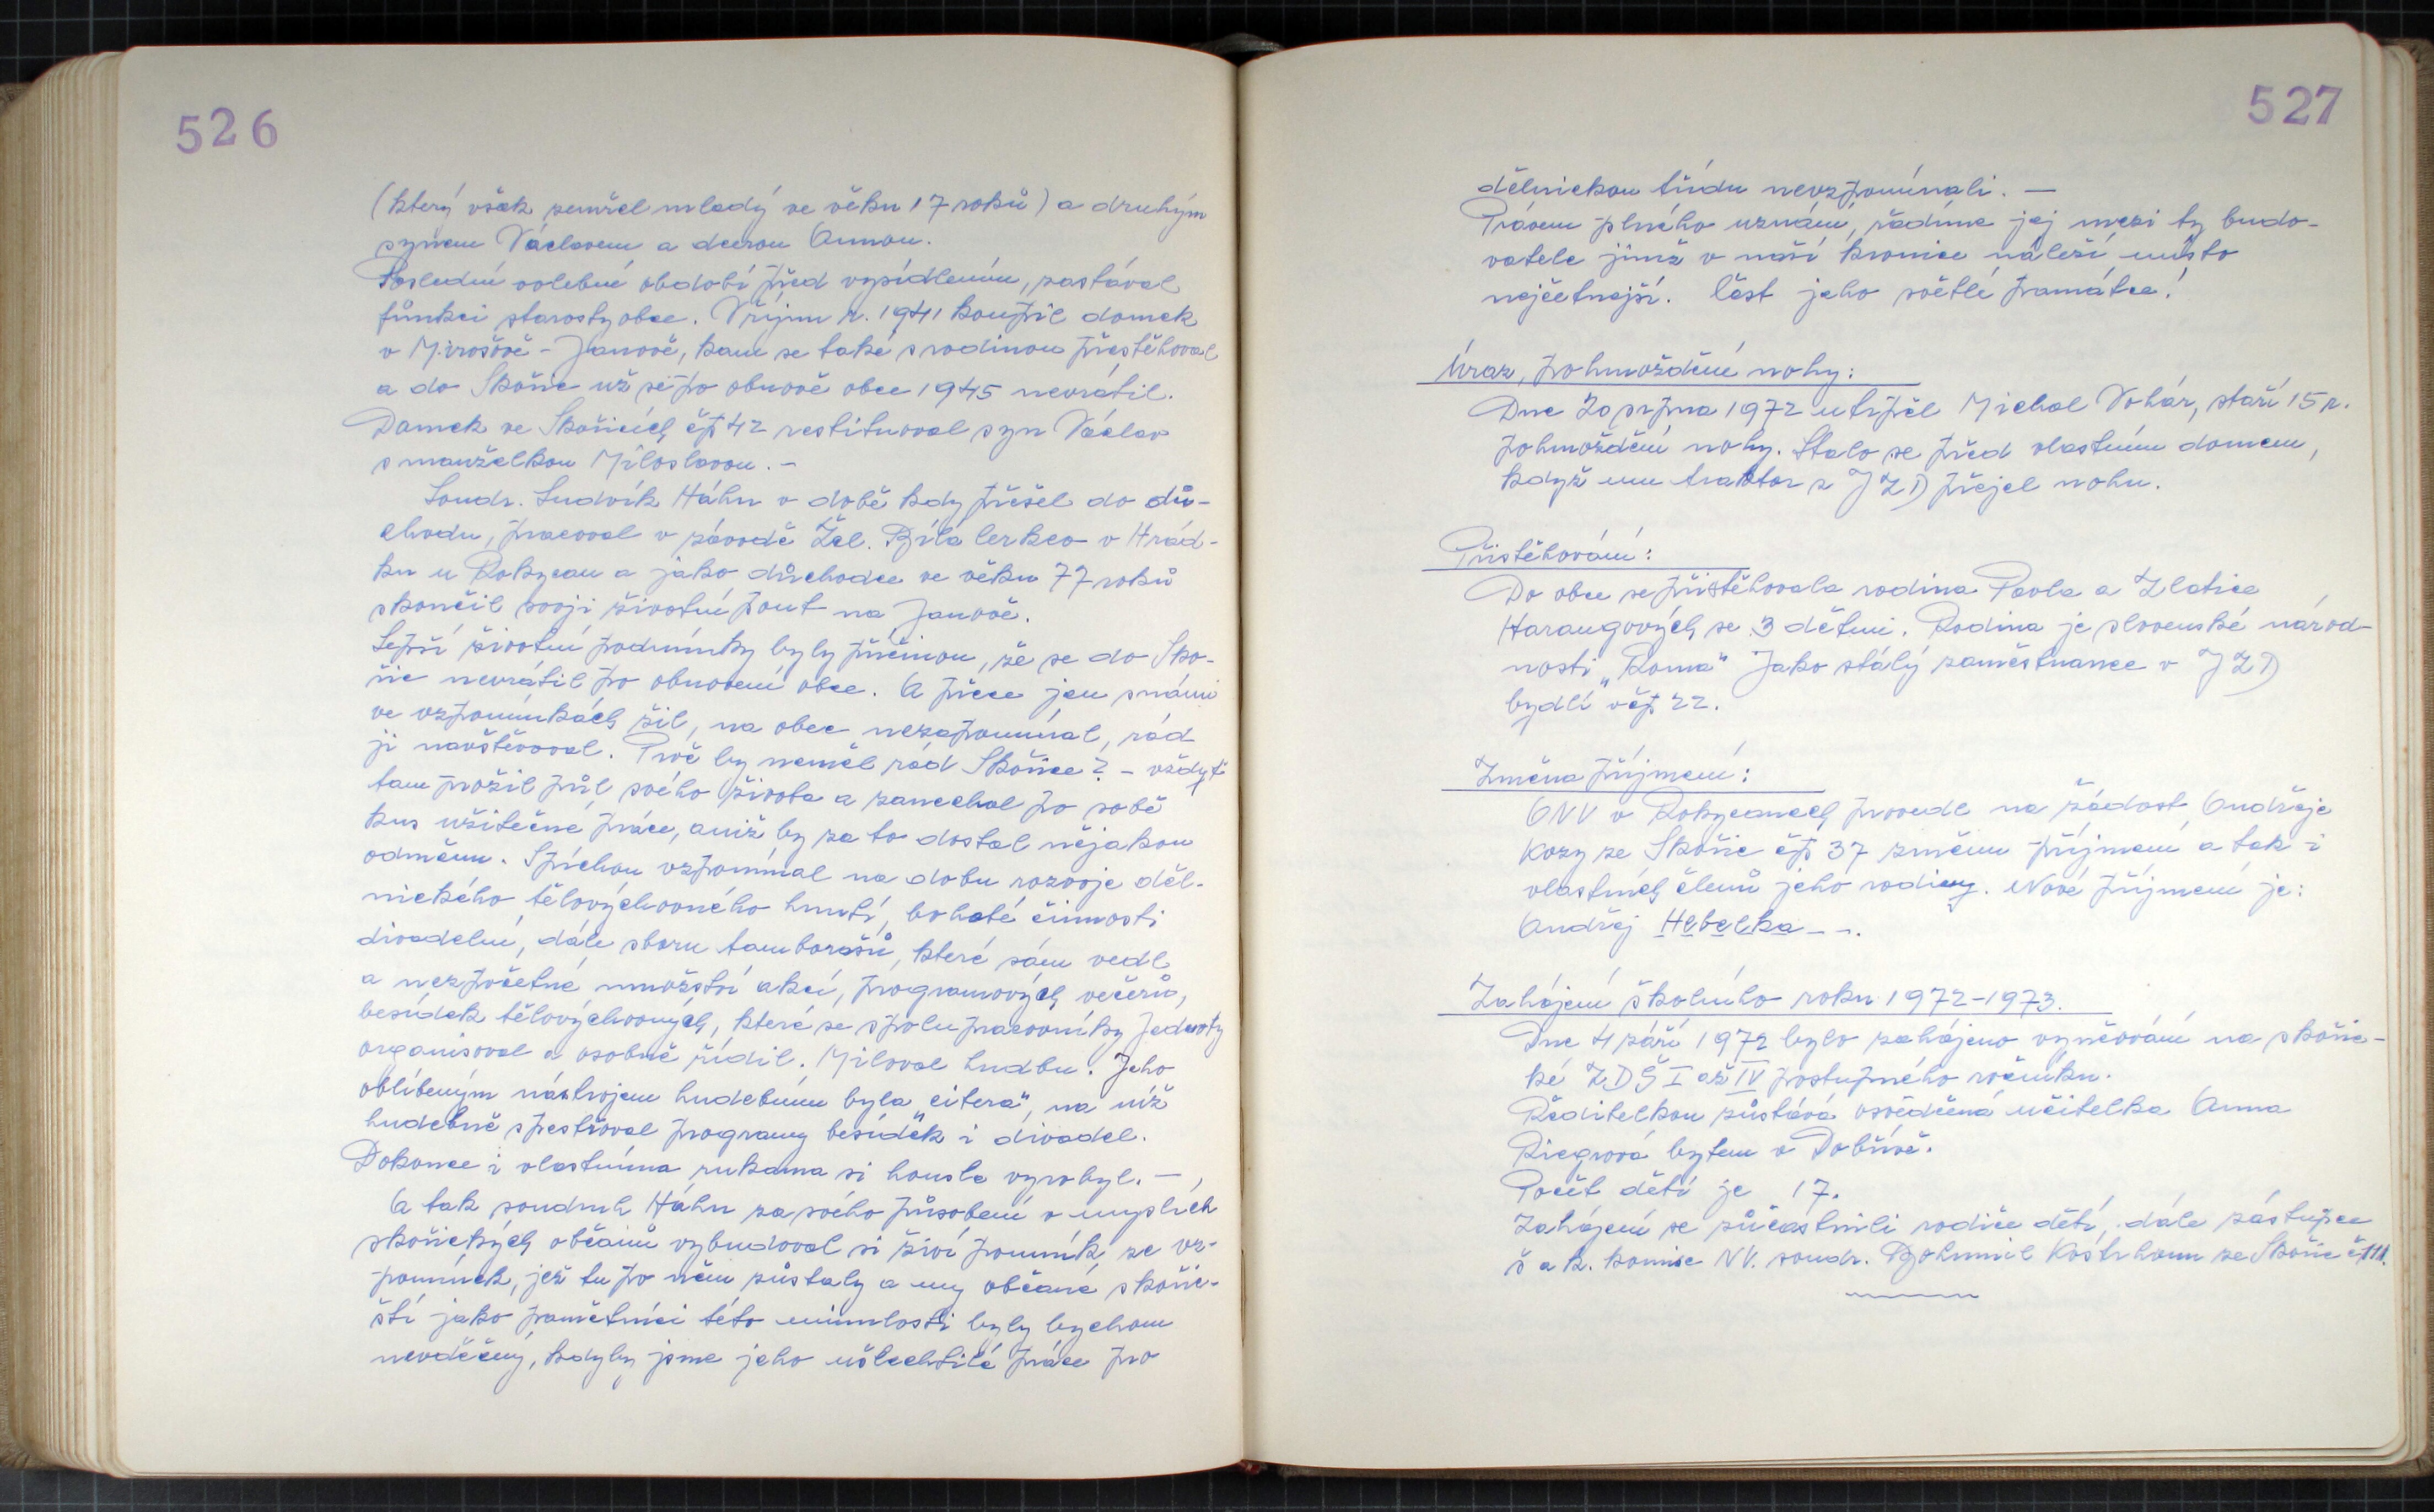 526
(který však zemřel mladý ve věku 17 roků) a druhým
synem Václavem a dcerou Annou.
Poslední volební období před vysídlením, zastával
funkci starosty obce. V říjnu r. 1941 koupil domek
v Mirošově - Janově, kam se také s rodinou přestěhoval
a do Skořic už se po obnově obce 1945 nevrátil.
Domek ve Skořicích čp 42 restituoval syn Václav
s manželkou Miloslavou. -
Soudr. Ludvík Háhn v době kdy přešel do dů-
chodu, pracoval v závodě Žel. Bílá Cerkev v Hrád-
ku u Rokycan a jako důchodce ve věku 77 roků
skončil svoji životní pout na Janově.
Lepší životní podmínky byly příčinou, že se do Sko-
řic nevrátil po obnovení obce. A přece jen s námi
ve vzpomínkách žil, na obec nezapomínal, rád
ji navštěvoval. Proč by neměl rád Skořice? - vždyť
tam prožil půl svého života a zanechal po sobě
kus užitečné práce, aniž by za to dostal nějakou
odměnu. S pýchou vzpomínal na dobu rozvoje děl-
nického tělovýchovného hnutí, bohaté činnosti
divadelní, dále sboru tamborašů, které sám vedl
a nezpočetné množství akcí, programových večerů,
besídek tělovýchovných, které se spolupracovníky Jednoty
organisoval a osobně řídil. Miloval hudbu. Jeho
oblíbeným nástrojem hudebním byla "citera", na níž
hudebně zpestřoval programy besídek i divadel.
Dokonce i vlastníma rukama si housle vyrobyl. -
A tak soudruh Háhn za svého působení v myslích
skořických občanů vybudoval si živí pomník ze vz-
pomínek, jež tu po něm zůstaly a my občané skořic-
ští jako pamětníci této minulosti byly bychom
nevděčný, kdyby jsme jeho ušlechtilé práce pro
527
dělnickou třídu nevzpomínali. -
Právem plného uznání, řadíme jej mezi ty budo-
vatele jímž v naší kronice náleží místo
nejčetnejší. Čest jeho světlé památce!
Úraz, pohmoždění nohy:
Dne 20 srpna 1972 utrpěl Michal Vohár, stáří 15 r.
pohmoždění nohy. Stalo se před vlastním domem,
když mu traktor z JZD přejel nohu.
Přistěhování:
Do obce se přistěhovala rodina Pavla a Zlatice
Harangových se 3 dětmi. Rodina je slovenské národ-
nosti "Roma" Jako stálý zaměstnanec v JZD
bydlí v čp 22.
Změna příjmení:
ONV v Rokycanech provedl na žádost Ondřeje
Kozy ze Skořic čp 37 změnu příjmení a tak i
vlastních členů jeho rodiny. Nové příjmení je:
Ondřej Hebelka - -.
Zahájení školního roku 1972-1973.
Dne 4 září 1972 bylo zahájeno vyučování na skořic-
ké ZDŠ I až IV postupného ročníku.
Ředitelkou zůstává osvědčená učitelka Anna
Riegrová bytem v Dobřívě.
Počet dětí je 17.
Zahájení se zůčastnili rodiče dětí, dále zástupce
š a k. komise NV. soudr. Bohumil Kostrhoun ze Skořic čp 111.